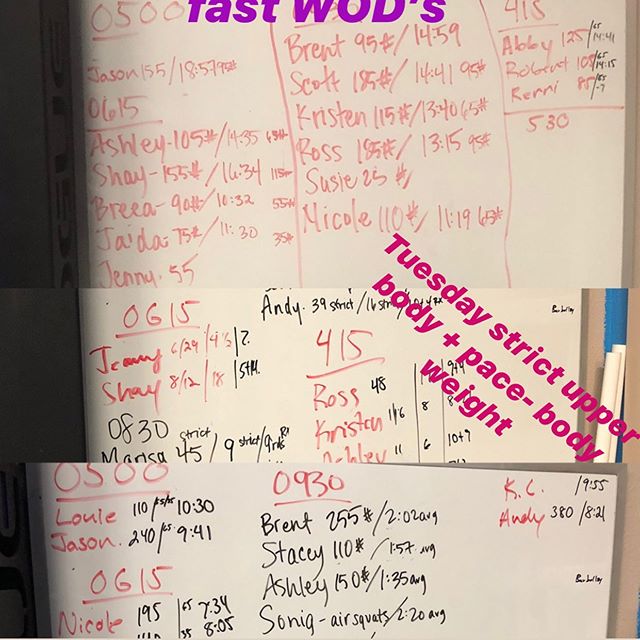 fast WOD's
0500
Jason 155/18:57 95#
0615
Ashley-105#/14:35 65#
Shay-155#/16:34 115#
Breea-90#/10:32 55#
Jaida 75#/11:30 35#
Jenny. 55
Brent 95#/14:59
Scott 185#/14:41 95#
Kristen 115#/13:40 65#
Ross 185#/13:15 95#
Susie 25#/
Nicole 110#/11:19 65#
415
Abby 125/65 14:41
Robert 105/65 14:15
Renni 85/55
530
Tuesday strict upper
body + pace- body
weight
Andy. 39 strict/16 strict/
0615
Jenny 6/29/9½/7.
Shay 8/12/18
0830
Marisa 45/9 strict/
strict
415
Ross 48
Kristen 11/6 8
Ashley 11 6 10+9
0500
Louie 110/ 10:30
Jason. 240/65 9:41
0615
Nicole 195/65 7:34
55 8:05
0930
Brent 255#/2:02 avg
Stacey 110#/1:57 avg
Ashley 150#/1:35 avg
Soniq-airsquats/2:20 avg
K.C. /9:55
Andy 380/8:21